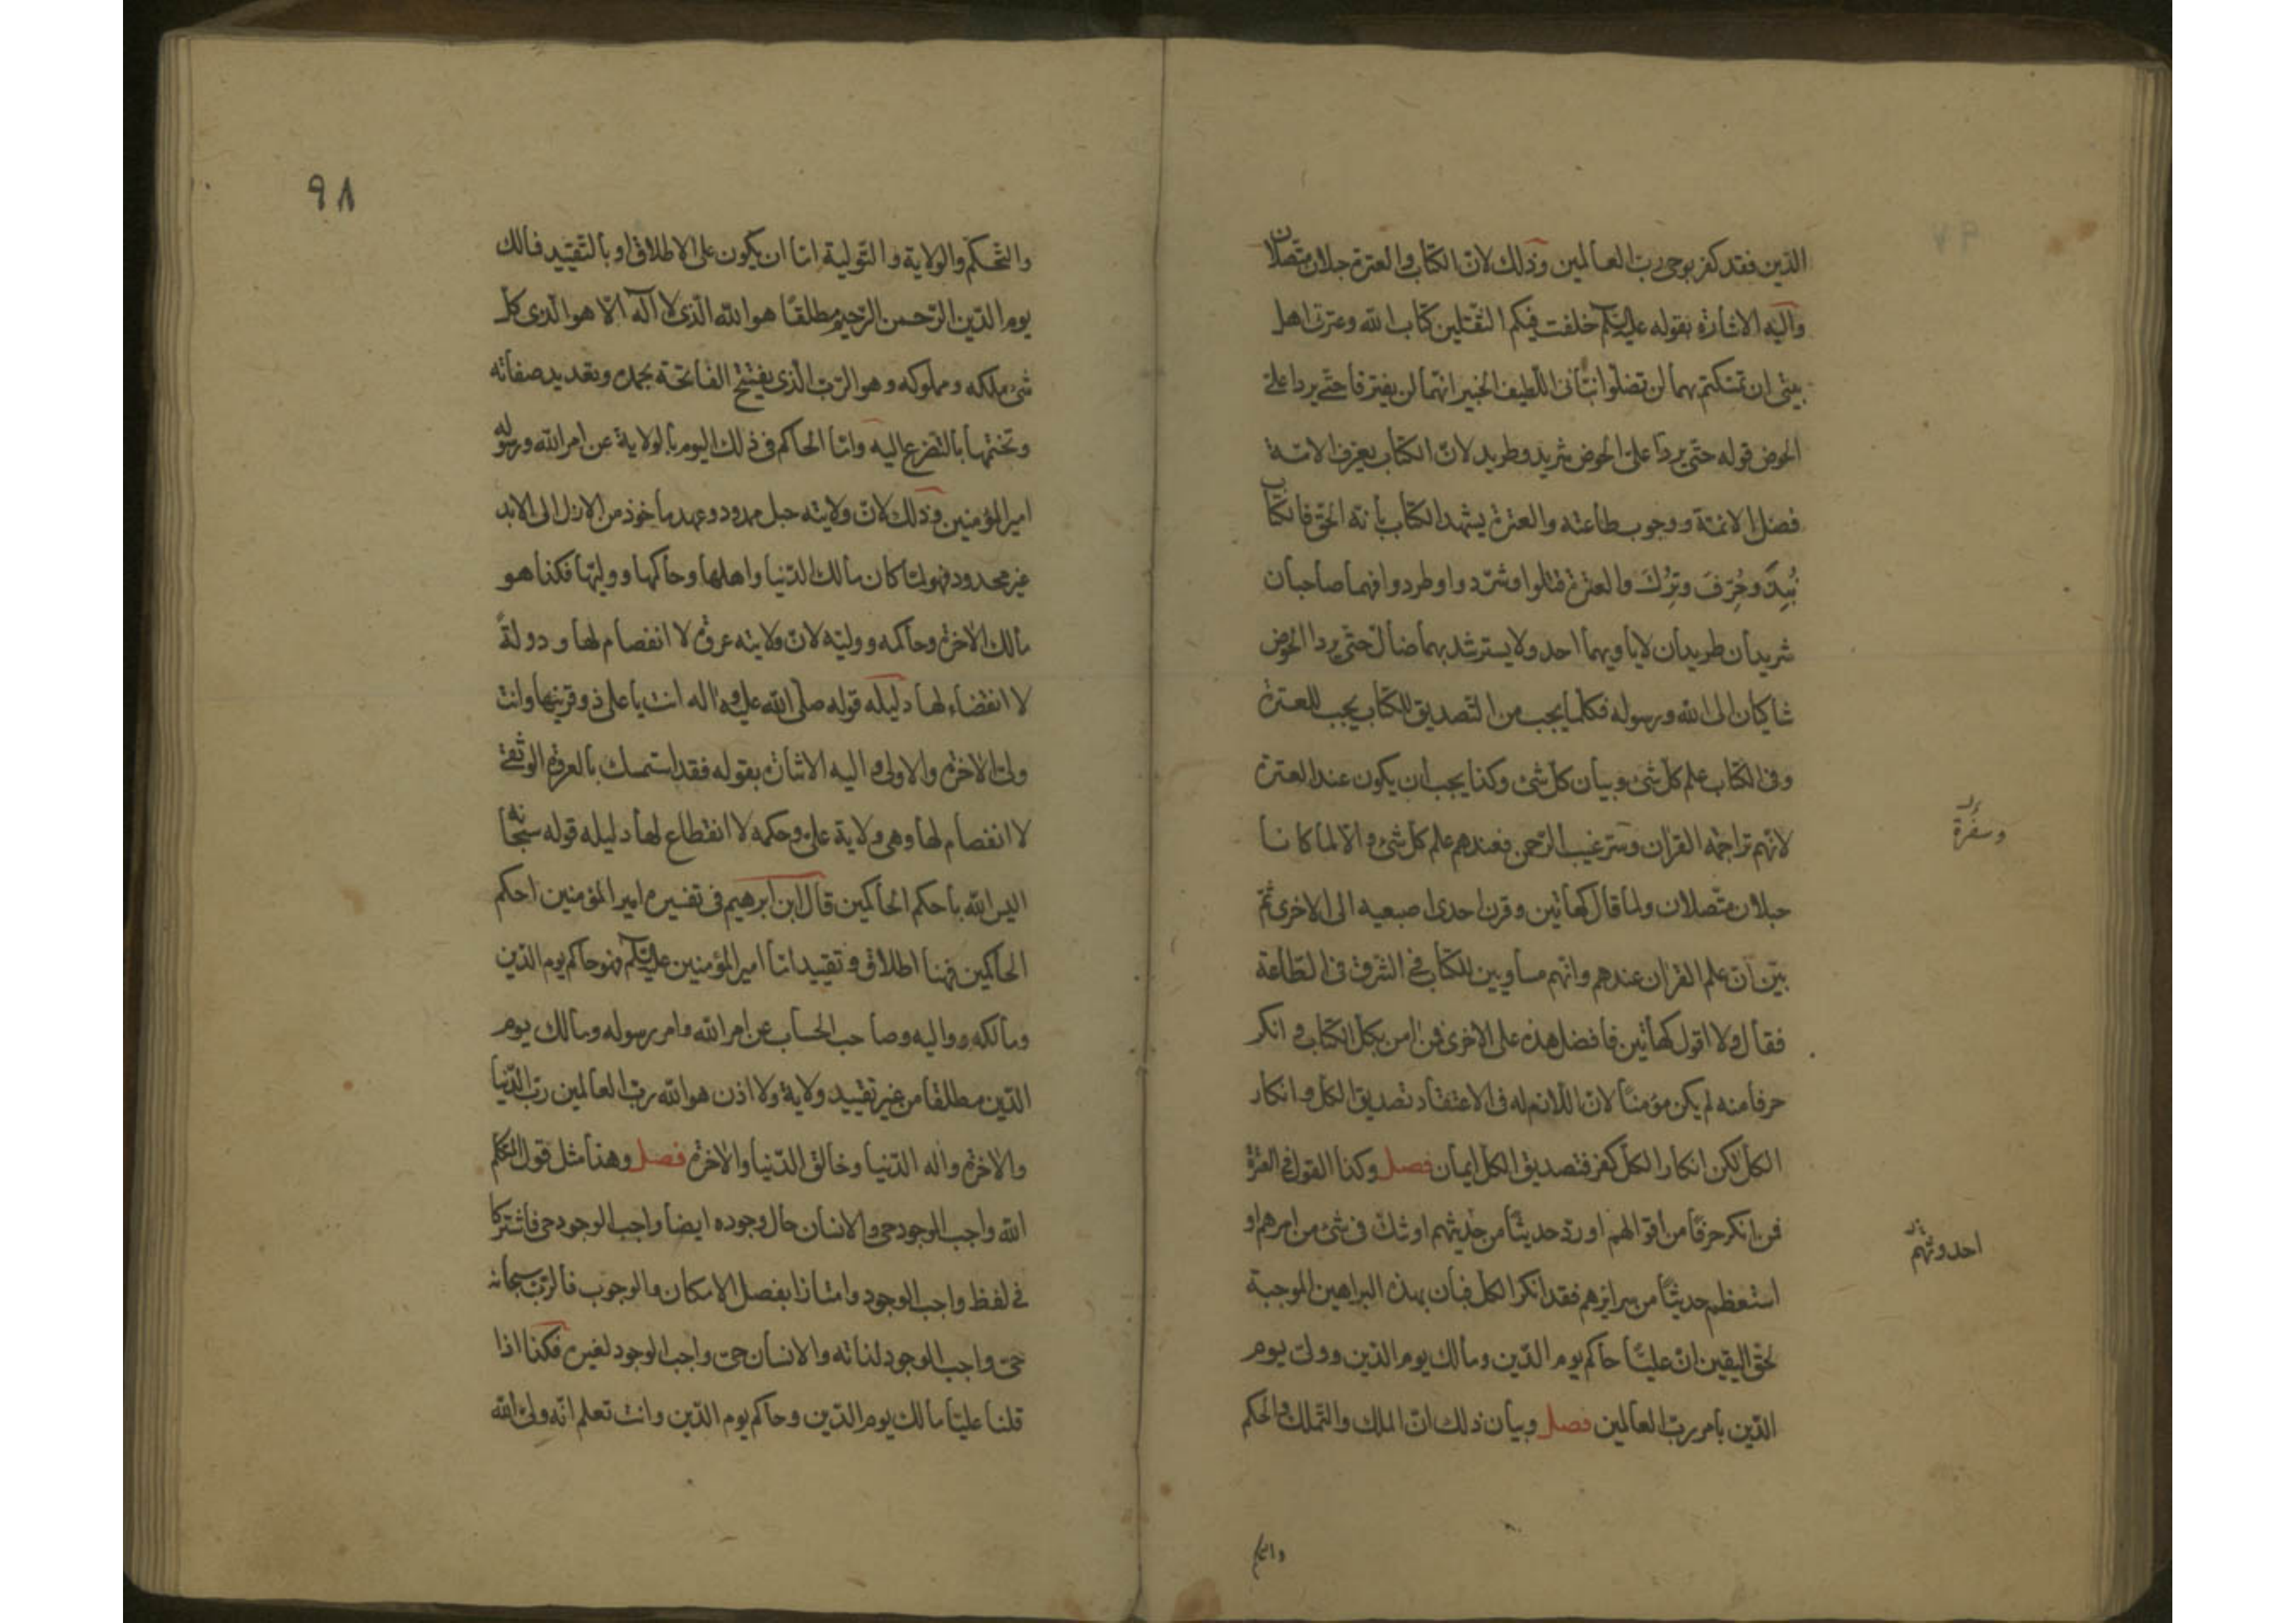 الذين فقد كفر بوحي رب العالمين وذلك لان الكتاب والعترة حبلان متصلان
واليه الاشارة بقوله عليه السلم خلفت فيكم الثقلين كتاب الله وعترتي اهل
بيتي ان تمسكتم بهما لن تضلوا نبأني اللطيف الخبير انهما لن يفترقا حتى يردا علي
الحوض قوله حتى يردا علي الحوض شريد وطريد لان الكتاب يعرف الامة
فضل الائمة ووجوب طاعته والعترة يشهد الكتاب بانه الحق فالكتاب
نُبِذَ وحُرِّفَ وتُرِكَ والعترة قتلوا وشردوا وطردوا فهما صاحبان
شريدان طريدان لا يأويهما احد ولا يسترشد بهما ضال حتى يردا الحوض
شاكيان الى الله ورسوله فكلما يجب من التصديق للكتاب يجب للعترة
وفي الكتاب علم كل شئ وبيان كل شئ وكذا يجب ان يكون عند العترة
لانهم تراجمة القران وستر غيب الرحمن فعندهم علم كل شئ والا لما كانا
وسفرة
حبلان متصلان ولما قال كهاتين وقرن احدى اصبعيه الى الاخرى ثم
بين ان علم القران عندهم وانهم مساويين للكتاب في الشرف في الطاعة
فقال ولا اقول كهاتين فافضل هذه على الاخرى فمن امن بكل الكتاب وانكر
حرفا منه لم يكن مؤمنا لان اللازم له في الاعتقاد تصديق الكل وانكار
الكل لكن انكار الكل كفر فتصديق الكل ايمان فصل وكذا القول في العترة
فمن انكر حرفًا من أقوالهم او رد حديثًا من حديثهم او شك في شئ من امرهم او
احدوثهم
استعظم حديثًا من سرايرهم فقد انكر الكل فبان بهذه البراهين الموجبة
لحق اليقين ان عليًا حاكم يوم الدين ومالك يوم الدين وولي يوم
الدين بامر رب العالمين فصل وبيان ذلك ان الملك والتملك والحكم
والتحكم
٩٨
والتحكم والولاية والتولية اما ان يكون على الاطلاق او بالتقييد فمالك
يوم الدين الرحمن الرحيم مطلقًا هو الله الذي لا اله الا هو الذي كل
شئ ملكه ومملوكه وهو الرب الذي يفتتح الفاتحة بحمده وتعديد صفاته
وتختمها بالتضرع اليه واما الحاكم في ذلك اليوم بالولاية عن امر الله ورسوله
امير المؤمنين وذلك لان ولايته حبل ممدود وعهد ماخوذ من الازل الى الابد
غير محدود فهو لما كان مالك الدنيا واهلها وحاكمها ووليها فكذا هو
مالك الاخرة وحاكمه ووليه لان ولايته عروة لا انفصام لها ودولةً
لا انقضاء لها دليله قوله صلى الله عليه واله انت يا علي ذو قرنيها وانت
ولي الاخرة والاولى واليه الاشارة بقوله فقد استمسك بالعروة الوثقى
لا انفصام لها وهي ولاية علي وحكمه لا انقطاع لها دليله قوله سبحانه
اليس الله باحكم الحاكمين قال ابن ابرهيم في تفسيره امير المؤمنين احكم
الحاكمين فهنا اطلاق وتقييد اما امير المؤمنين عليه السلم فهو حاكم يوم الدين
ومالكه وواليه وصاحب الحساب عن امر الله وامر رسوله ومالك يوم
الدين مطلقا من غير تقييد ولاية ولا اذن هو الله رب العالمين رب الدنيا
والاخرة واله الدنيا وخالق الدنيا والاخرة فصل وهذا مثل قول المتكلم
الله واجب الوجود حي والانسان حال وجوده ايضا واجب الوجود حي فاشتركا
في لفظ واجب الوجود وامتازا بفصل الامكان والوجوب فالرب سبحانه
حي واجب الوجود لذاته والانسان حي واجب الوجود لغيره فكذا اذا
قلنا عليًا مالك يوم الدين وحاكم يوم الدين وانت تعلم انه ولي الله